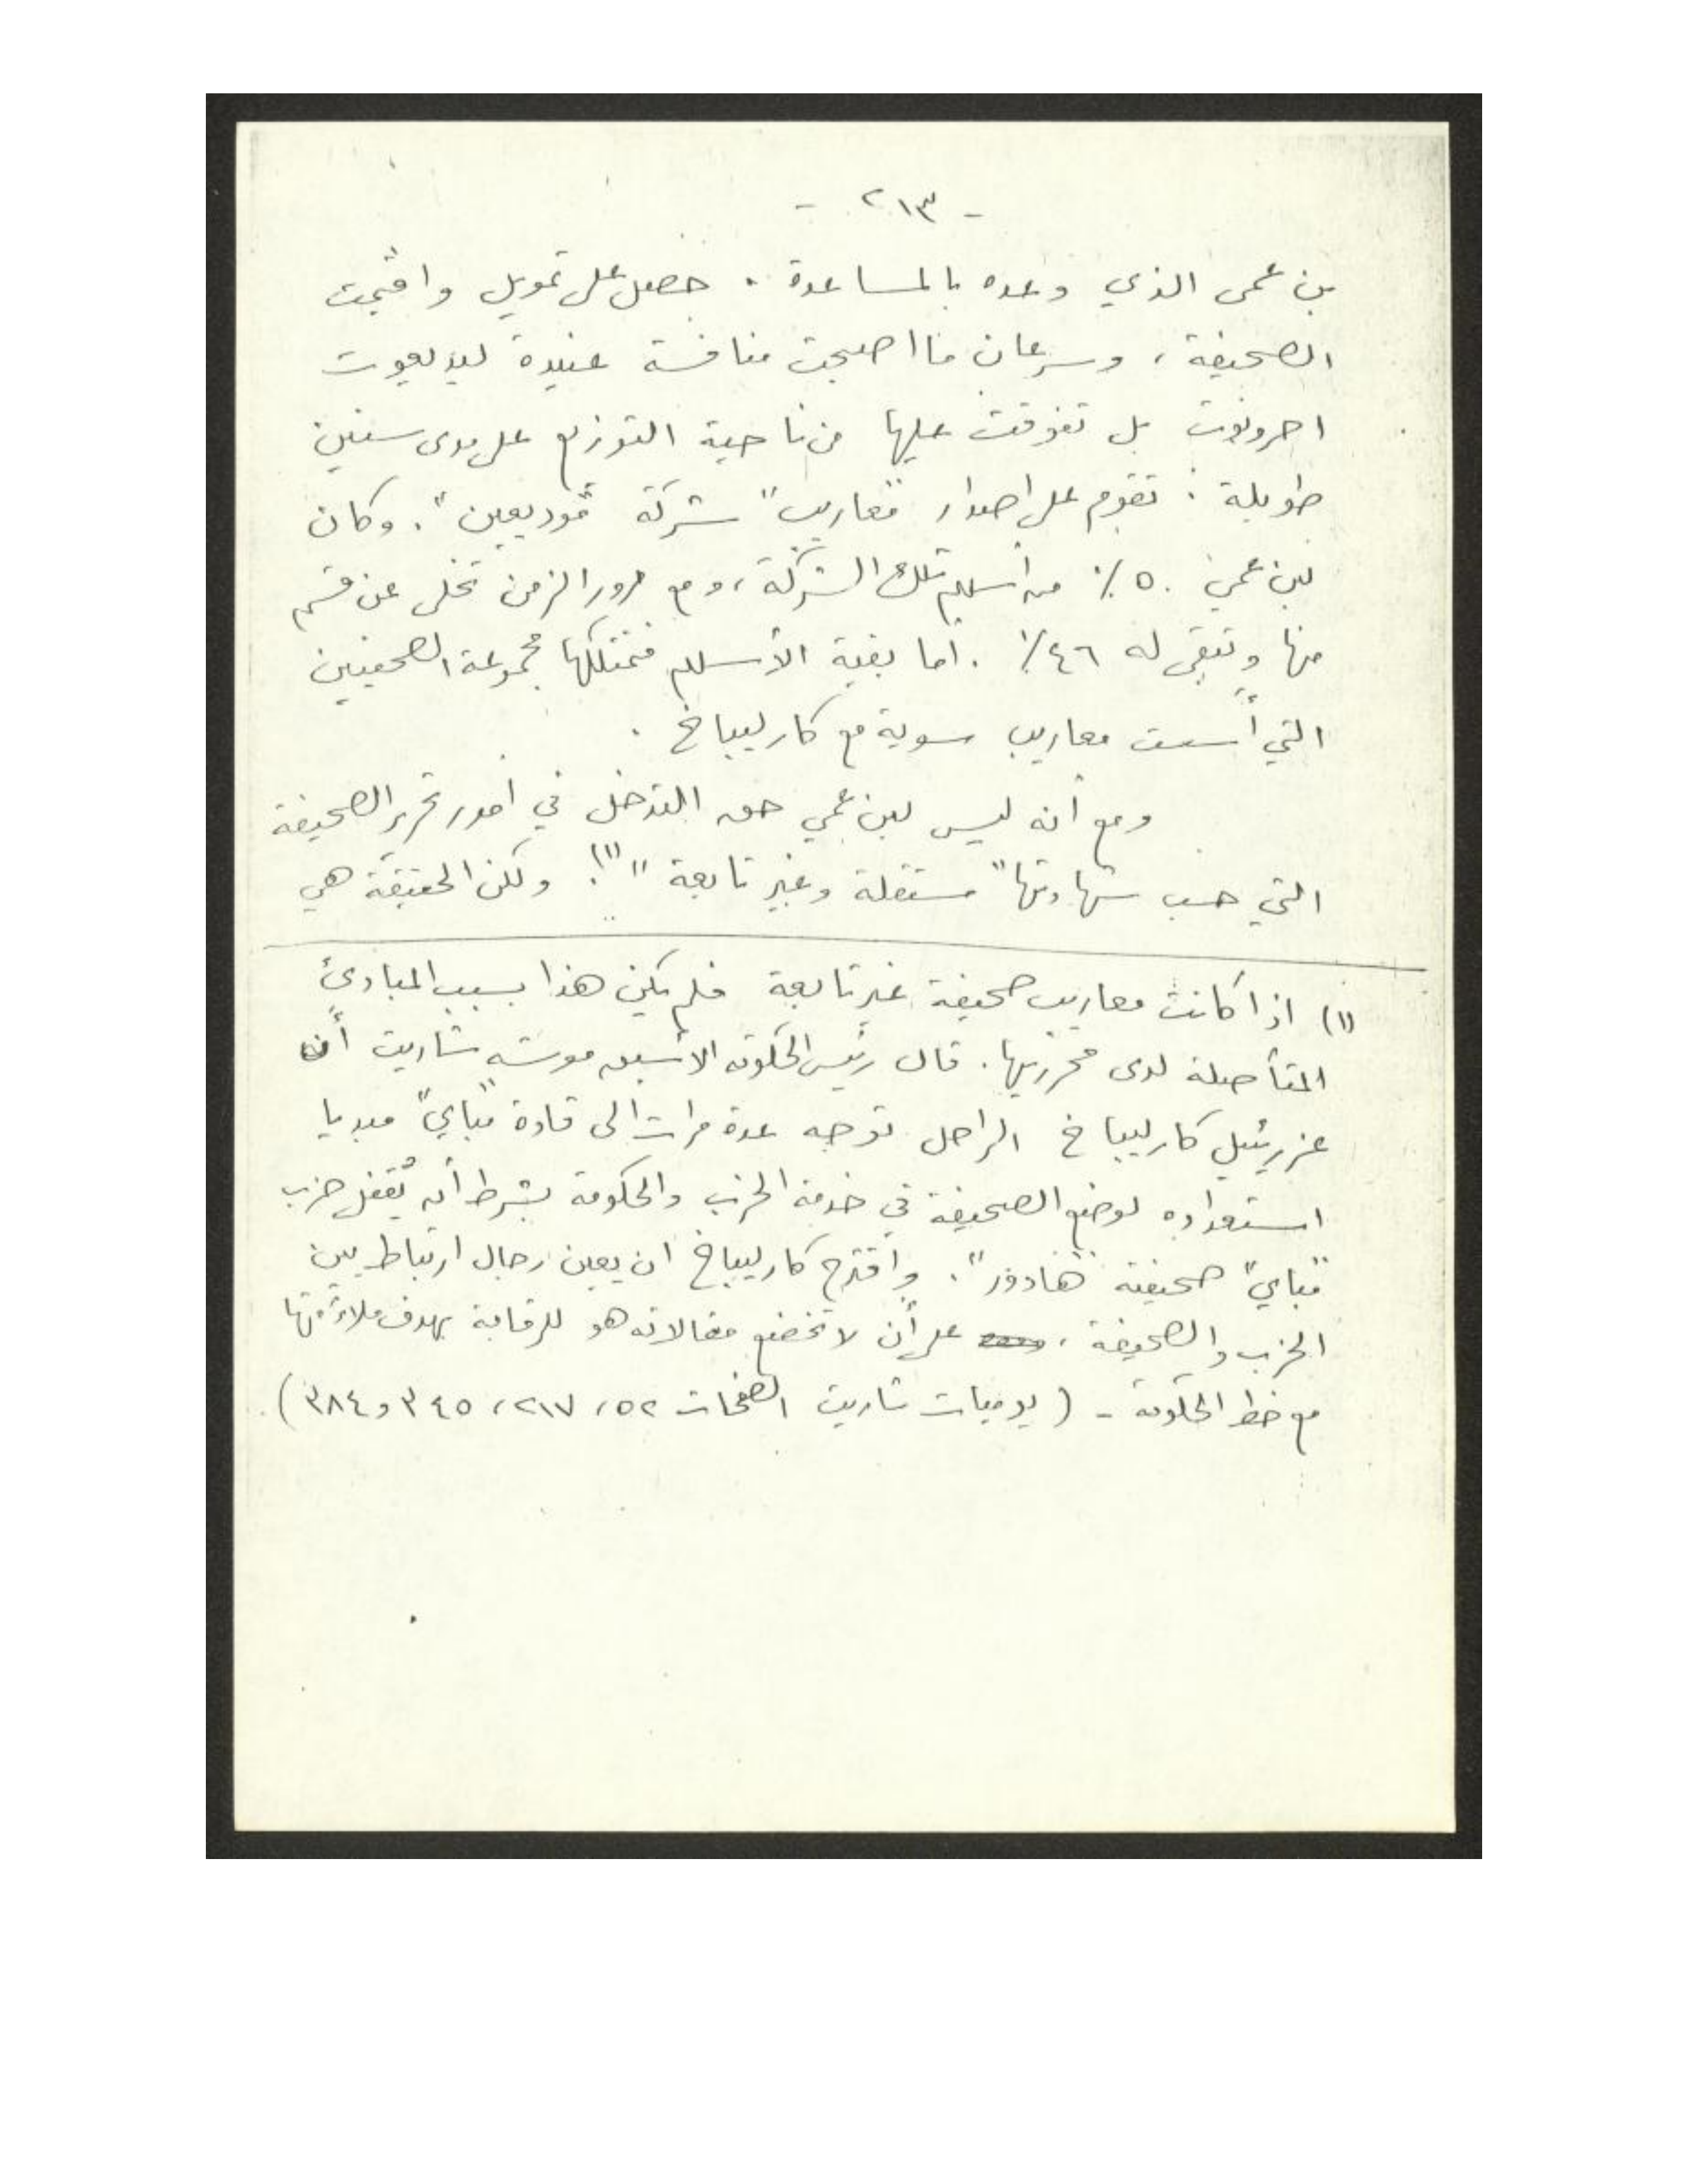 - ٢١٣ -
بن عمي الذي وعده بالمساعدة . حصل على تمويل واقيمت
الصحيفة ، وسرعان ما اصبحت منافسة عنيدة ليديعوت
احرونوت بل تفوقت عليها من ناحية التوزيع على مدى سنين
طويلة . تقوم على اصدار "معاريب" شركة "موديعين" . وكان
لبن عمي ٥٠٪ من أسهم تلك الشركة ، ومع مرور الزمن تخلى عن قسم
منها وتبقى له ٤٦٪ . أما بقية الأسهم فتمتلكها مجموعة الصحفيين
التي أسست معاريب سوية مع كارليباخ .
ومع أنه ليس لبن عمي حق التدخل في أمور تحرير الصحيفة
التي حسب شهادتها "مستقلة وغير تابعة" (١) . ولكن الحقيقة هي
(١) اذا كانت معاريب صحيفة غير تابعة فلم يكن هذا بسبب المبادئ
المتأصلة لدى محرريها . قال رئيس الحكومة الأسبق موشه شاريت أن
عزرئيل كارليباخ الراحل توجه عدة مرات الى قادة "مباي" مبديا
استعداده لوضع الصحيفة في خدمة الحزب والحكومة بشرط أن يُقفل حزب
"مباي" صحيفة "هادور" . واقترح كارليباخ ان يعين رجال ارتباط بين
الحزب والصحيفة ، على أن لا تخضع مقالاته هو للرقابة بهدف ملاءمتها
مع خط الحكومة - ( يوميات شاريت الصفحات ٥٢ ، ٢١٧ ، ٣٤٥ و ٣٨٤ ) .